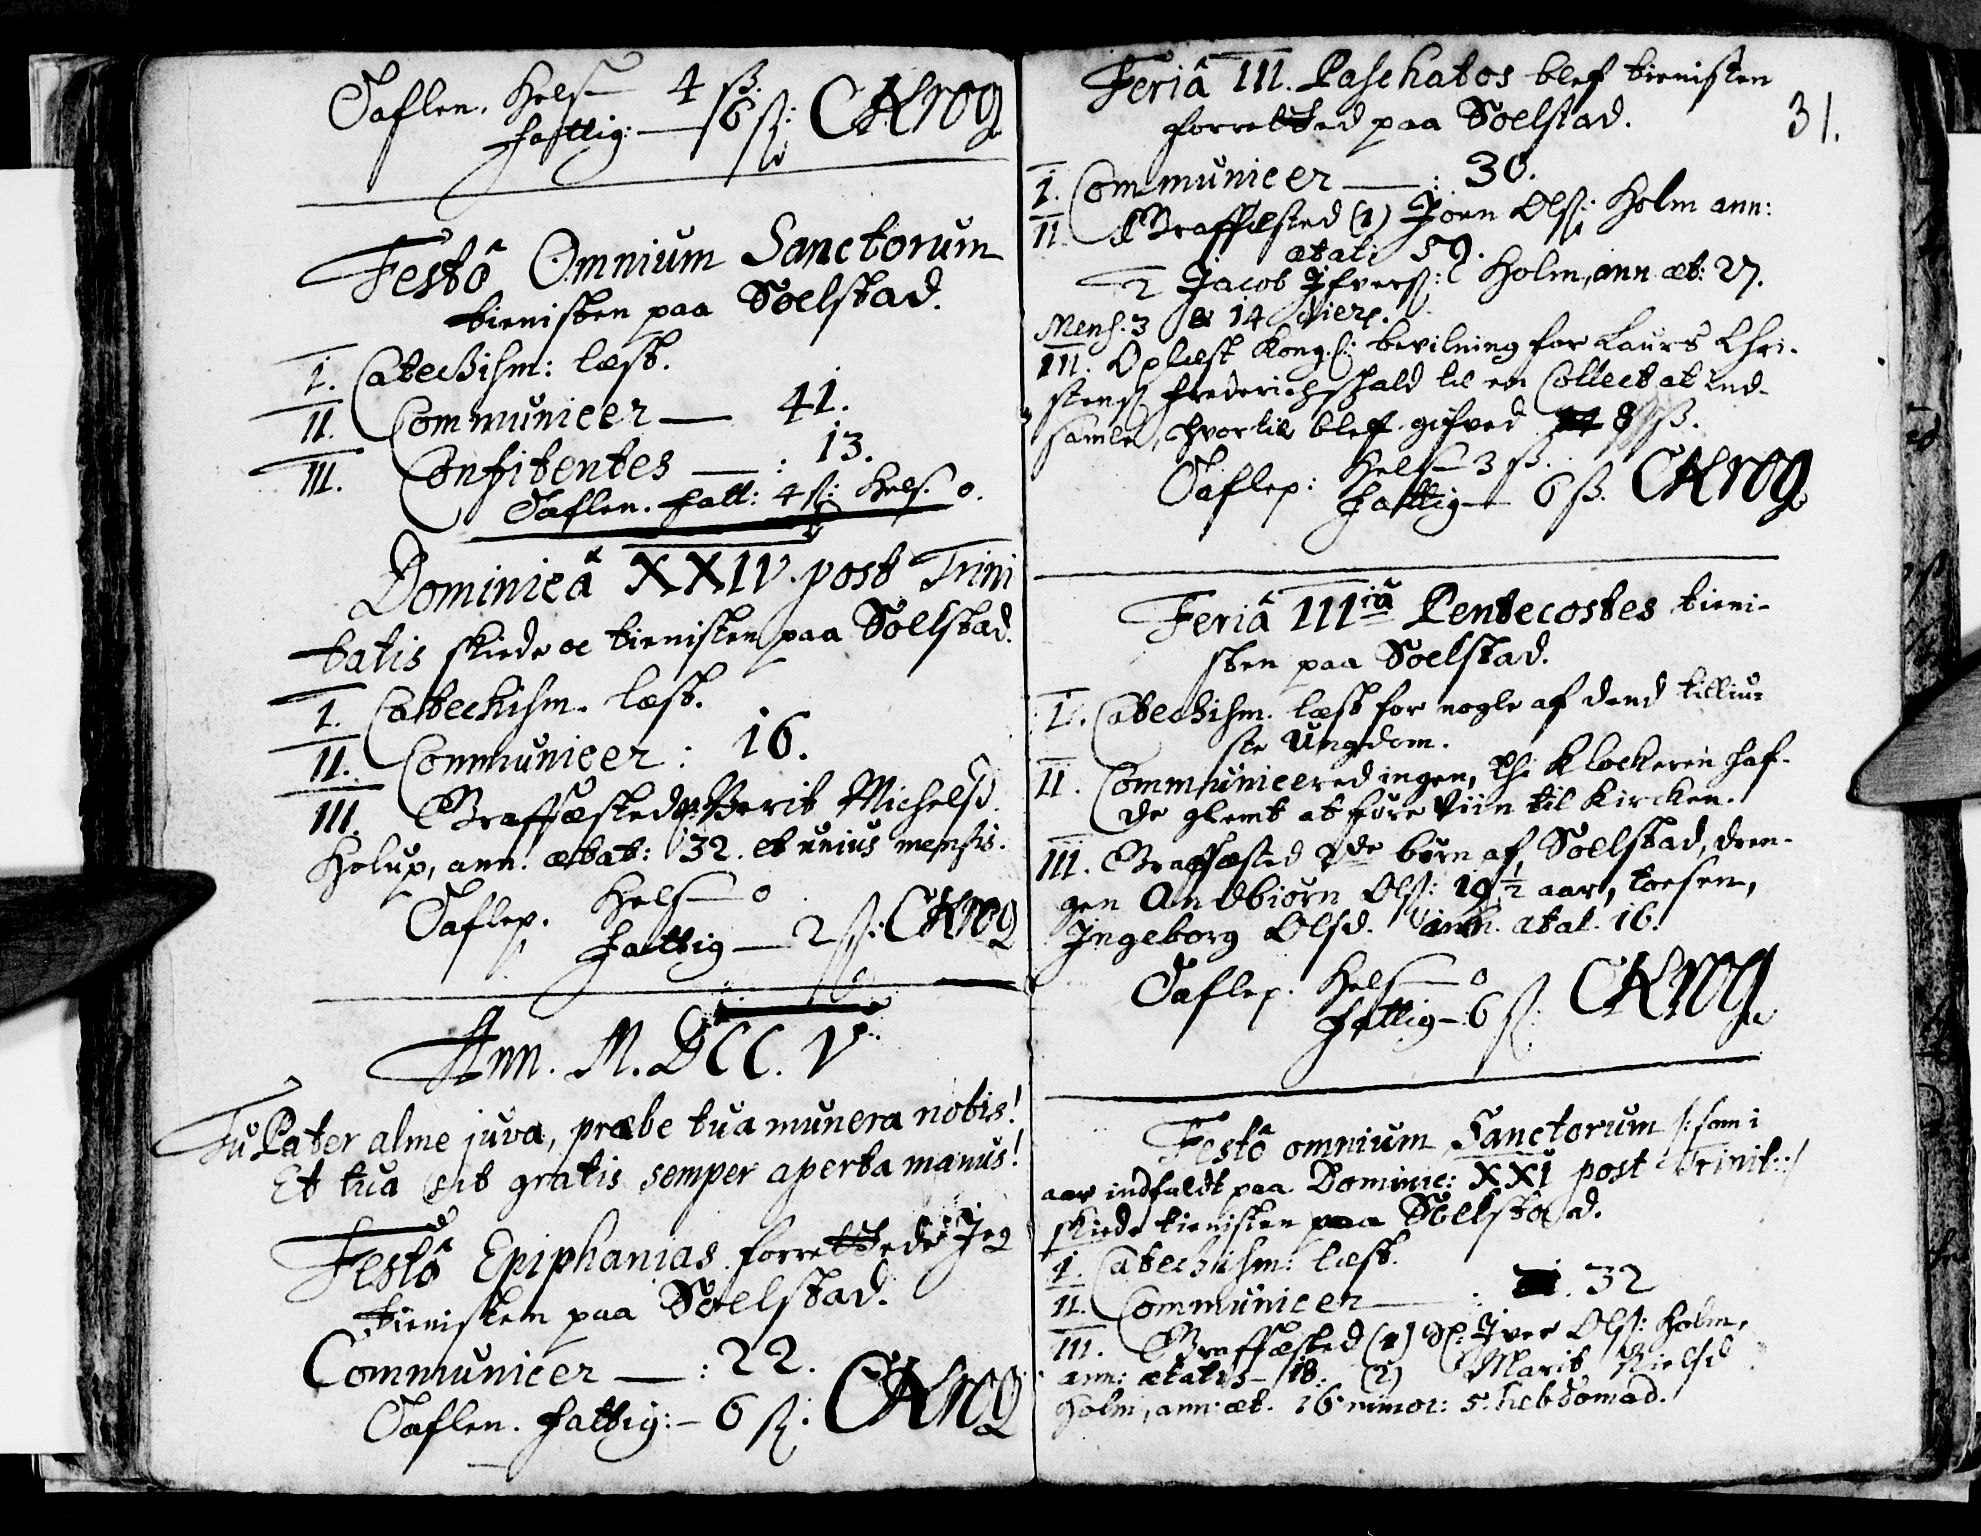 Taflen. Hels — 4 ß.
fattig: — 6 ß: CKrog
Festô Omnium Sanctorum
tienisten paa Soelstad.
I. Catechism: læst.
II. Communicer — 41.
III. Confitentes — : 13.
Taflen. fatt: 4 ß: Hels. 0.
Dominicâ XXIV. post Trini
tatis skiede oc tienisten paa Soelstad.
I. Catechism. læst.
II. Communicer : 16.
III. Graffæsted Berit Michelsd.
Holup, ann. ætat: 32. et unius mensis.
Taflen. Hels — 0
fattig — 2 ß: CKrog
Ann. M. DCC. V.
Tu Pater alme juva, præbe tua munera nobis!
Et tua sit gratis semper aperta manus!
Festô Epiphanias forrettede Jeg
tienisten paa Soelstad.
Communicer — : 22.
Taflen. fattig: — 6 ß: CKrog
31.
Feriâ III. Paschatos blef tienisten
forretted paa Soelstad.
I. Communicer — : 30.
II. Graffæsted (1) Joen Olß: Holm ann:
ætati 59.
2 Jacob Ifverß: Holm, ann æt: 27.
Mens. 3 & 14 dier.
III. Oplæst Kong: bevilning for Laurs Chri-
stenß Frederichshald til en Collect at ind-
samle, hvortil blef gifved 8 ß.
Taflen: Hels — 3 ß.
fattig — 6 ß. CKrog
Feriâ IIIiâ Pentecostes tieni-
sten paa Soelstad.
I. Catechism. læst for nogle af dend tilliu-
ste Ungdom.
II. Communicered ingen, thi Klockeren haf-
de glemt at føre Viin til Kircken.
III. Graffæsted 2de børn af Soelstad, dren-
gen Andbiørn Olß: 19 1/2 aar, toesen,
Ingeborg Olsd. ann. ætat. 16.
Taflen. Hels — 0
fattig — 6 ß: CKrog
Festô omnium Sanctorum /: som i
aar indfaldt paa Dominic: XXI post Trinit: :/
skiede tienisten paa Soelstad.
I. Catechism: læst.
II. Communicer — : 32
III. Graffæsted (1) Iver Olß: Holm,
ann: ætatis — 18. (2) Marit Nielsd
Holm, ann. æt. 16 minor: 5. hebdomad.